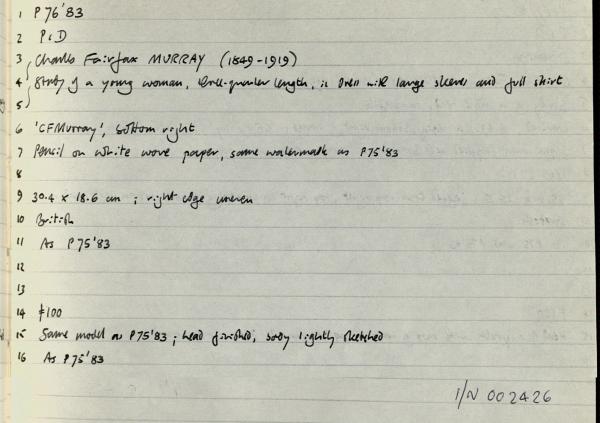 1 P 76'83
2 P&D
3 Charles Fairfax MURRAY (1849-1919)
4 Study of a young woman, three-quarter length, in dress with large sleeves and full skirt
5
6 'CFMurray', bottom right
7 Pencil on white wove paper, same watermark as P75'83
8
9 30.4 x 18.6 cm ; right edge uneven
10 British
11 As P 75'83
12
13
14 £100
15 Same model as P75'83 ; head finished, body lightly sketched
16 As P75'83
I/N 002426